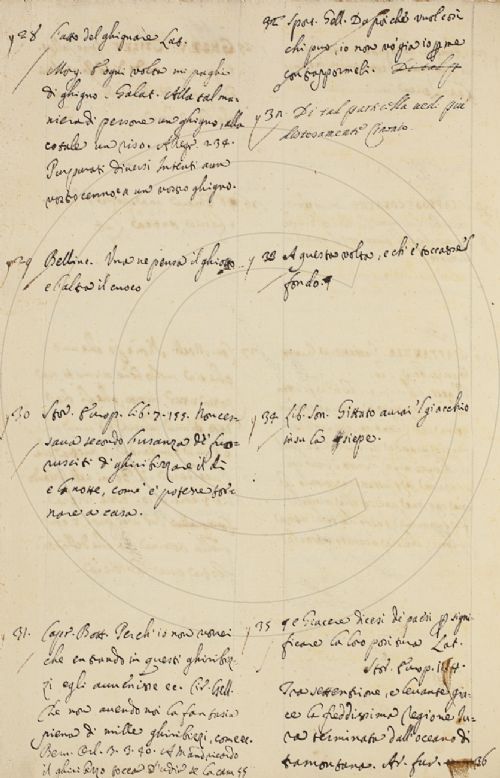 28 Latto del ghignare Lat.
Morg. E ogni volta mi paghi
di ghigno. Galat. Alla tal ma-
niera di persone un ghigno, alla
cotale un riso. Alleg. 234.
Purpurati diversi intenti a un
vostro cenno, a un vostro ghigno.
29 Bellinc. Una ne pensa il ghiotto
e l'altra il cuoco
30 Stor. Europ. lib. 7. 155. Non ces-
sava secondo l'usanza de' fuo-
rusciti di ghiribizzare il dì
e la notte, come e' potesse tor-
nare a casa.
31. Capr. Bott. Perch'io non vorrei
che entrando in questi ghiribiz-
zi egli avvenisse ec. Gell.
Che non avendo noi la fantasia
piena di mille ghiribizzi, come ec.
Bern. Orl. 3. 3. 50. A Mandricardo
il ghiribizzo tocca d'udir
32 Sport. Gell. Da poi che vuol così
chi può, io non vo' già io
contrappormeli. Di tal
Di tal particella vedi più
distesamente
33 A questa volta, e' ti è toccato 'l
fondo.
34 Lib. Son. Gittato avrai 'l giacchio
in su la siepe.
35 e Giacere dicesi di paesi per signi-
ficare la lor positura Lat.
Stor. Europ.
Tra settentrione, e levante gia-
ce la freddissima regione
terminata dall'oceano di
tramontana. Ar. Fur. 36